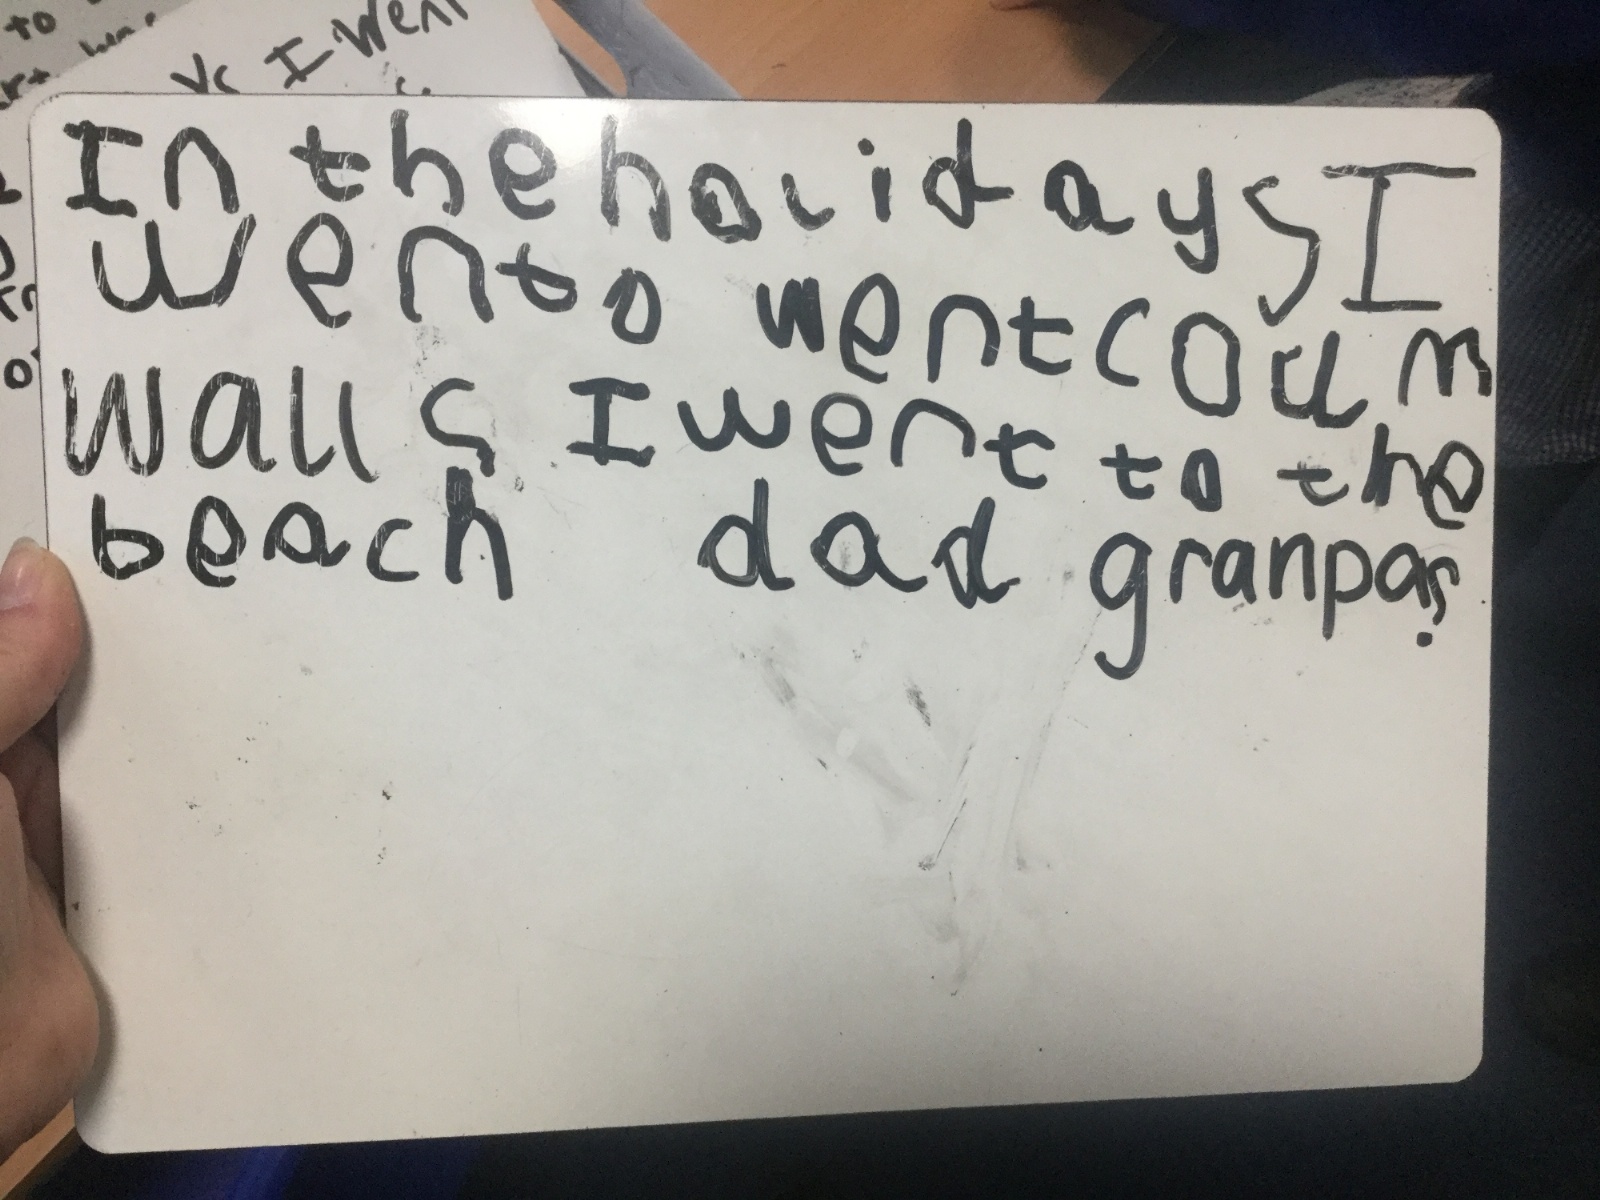 to
I Went
In the holidays I
wento went coulm
walls I went to the
beach dad granpas.